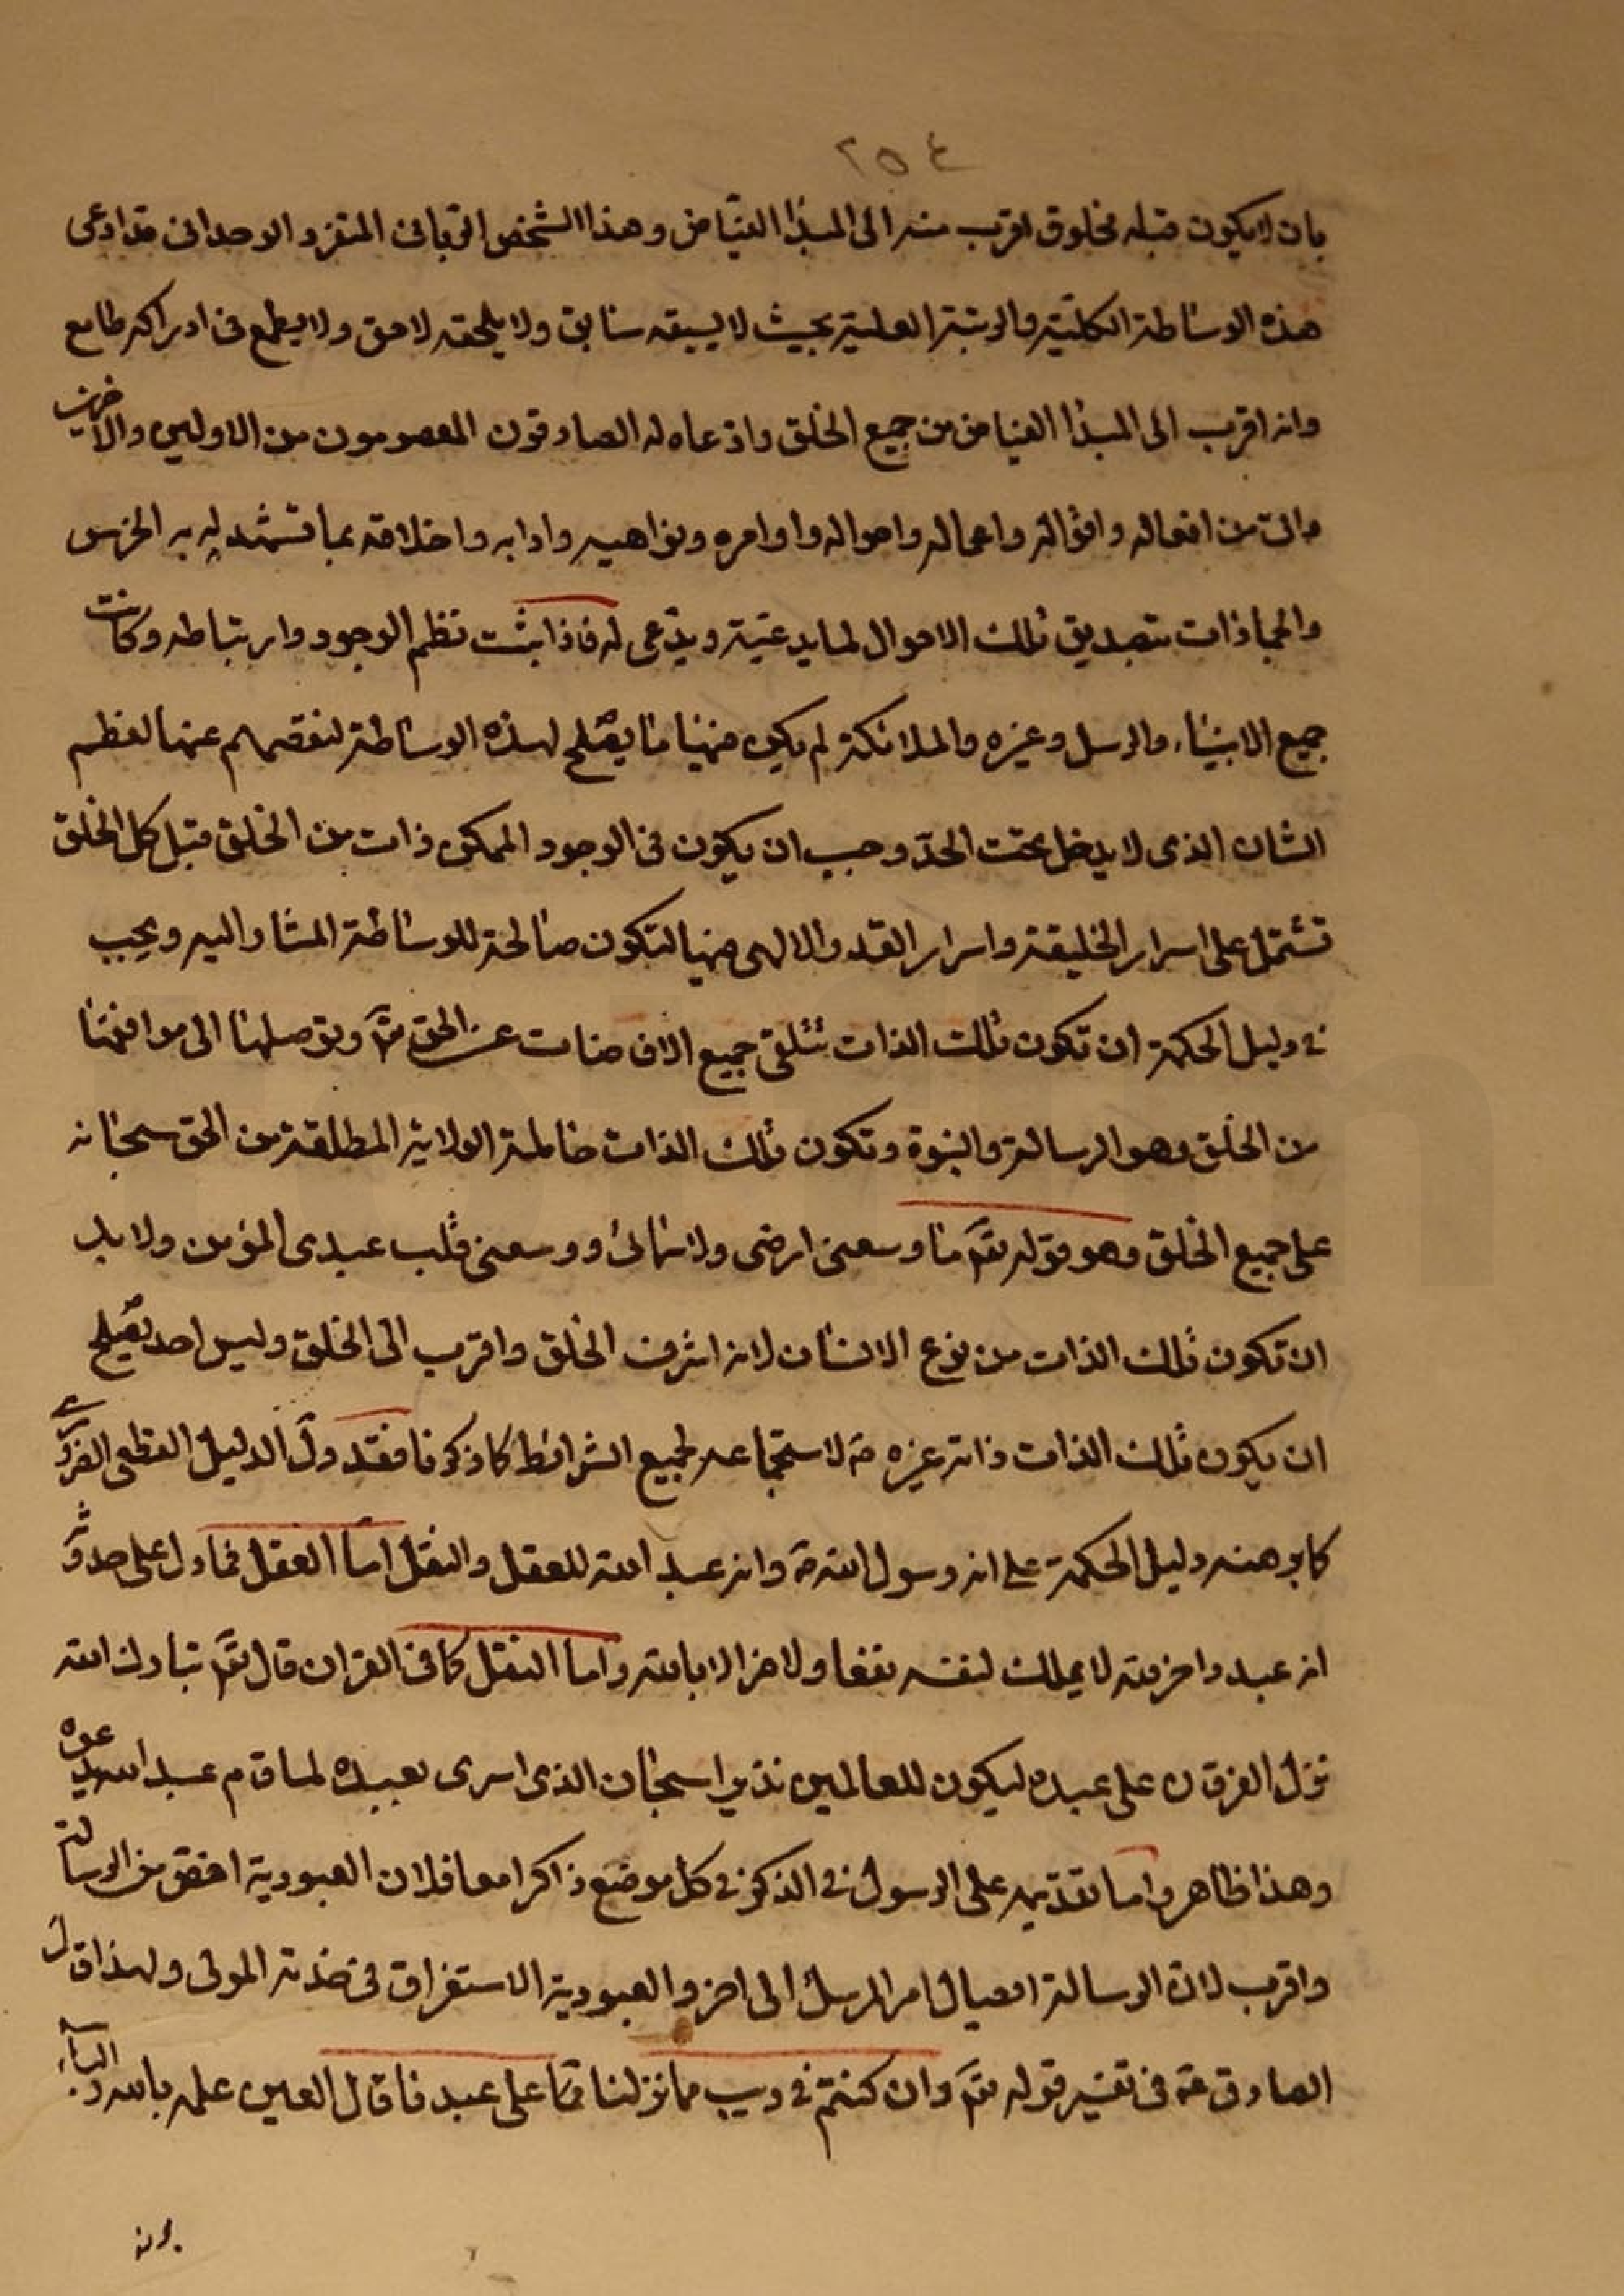 ٢٥٤
بان لا يكون قبله مخلوق اقرب منه الى المبدأ الفيّاض وهذا الشخص الربانى المتفرد الوحدانى قد ادعى
هذه الوساطة الكليّة والرتبة العليّة بحيث لا يسبقه سابق ولا يلحقه لاحق ولا يطمع فى ادراكه طامع
وانه اقرب الى المبدأ الفياض من جميع الخلق وادعاه له الصادقون المعصومون من الاولين والاخرين
واتى من افعاله واقواله واعماله واحواله واوامره ونواهيه وادابه واخلاقه بما تشهد له به الخرس
والجمادات بتصديق تلك الاحوال لما يدعيه ويدّعى له فاذا ثبت نظم الوجود وارتباطه وكانت
جميع الانبياء والرسل وغيره والملائكة لم يكن فيها ما يصلح لهذه الوساطة لنقصهم عنها لعظم
الشان الذى لا يدخل تحت الحدّ وجب ان يكون فى الوجود الممكن ذات من الخلق قبل كل الخلق
تشتمل على اسرار الخليقة واسرار القدر الالهى فيها لتكون صالحة للوساطة المشار اليه ويجب
فى دليل الحكمة ان تكون تلك الذات تتلقى جميع الافاضات عن الحق تع وتوصلها الى مواقعها
من الخلق وهو الرسالة والنبوة وتكون تلك الذات حاملة الولاية المطلقة من الحق سبحانه
على جميع الخلق وهو قوله تع ما وسعنى ارضى ولا سمائى ووسعنى قلب عبدى المؤمن ولا بد
ان تكون تلك الذات من نوع الانسان لانه اشرف الخلق واقرب الى الخلق وليس احد يصلح
ان يكون تلك الذات ذاته غيره ص لاستجماعه لجميع الشرائط كما ذكرنا فقد دلّ الدليل القطعى الضرورى
كما برهنه دليل الحكمة على انه رسول الله ص وانه عبد الله للعقل والنقل اما العقل فما دل على حدوثه
انه عبد داخر لله لا يملك لنفسه نفعا ولا ضرا الا بالله واما النقل كما فى القران قال تع تبارك الله
نزل الفرقان على عبده ليكون للعالمين نذيرا سبحان الذى اسرى بعبده لما قام عبد الله يدعوه
وهذا ظاهر واما تقديمه على الرسول فى الذكر فى كل موضع ذاكرا معا فلان العبودية اخص من الرسالة
واقرب لان الرسالة ايصال امر المرسل الى اخر والعبودية الاستغراق فى خدمة المولى ولهذا قال
الصادق ع فى تفسير قوله تع وان كنتم فى ريب مما نزلنا على عبدنا قال العين علمه بالله والباء
بونه